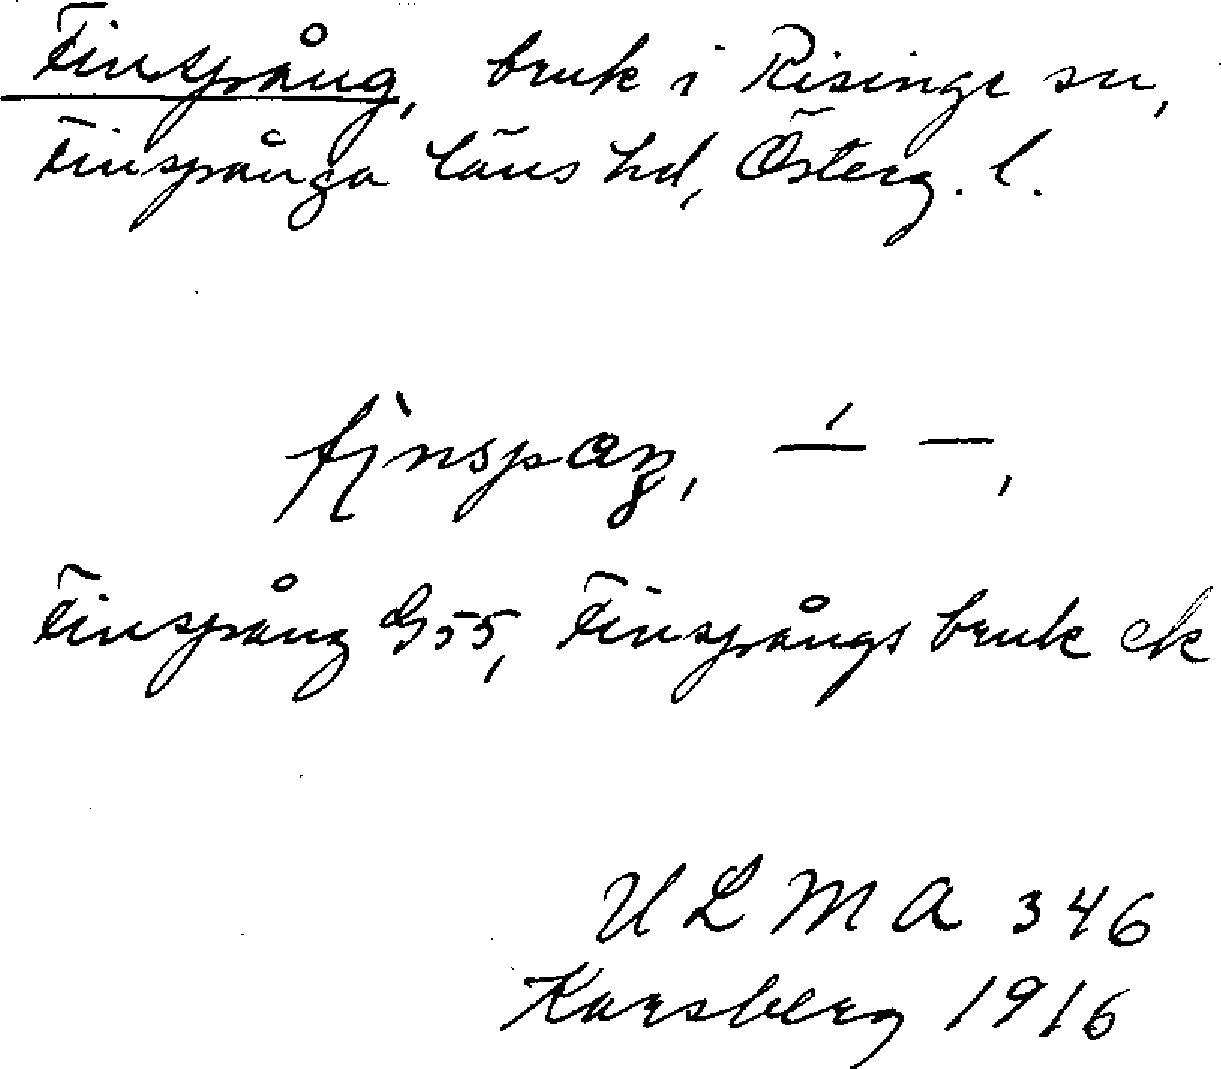 Finspång, bruk i Risinge sn,
Finspånga läns hd, Österg. l.
Finspång G55, Finspångs bruk ek
ULMA 346
Karsberg 1916